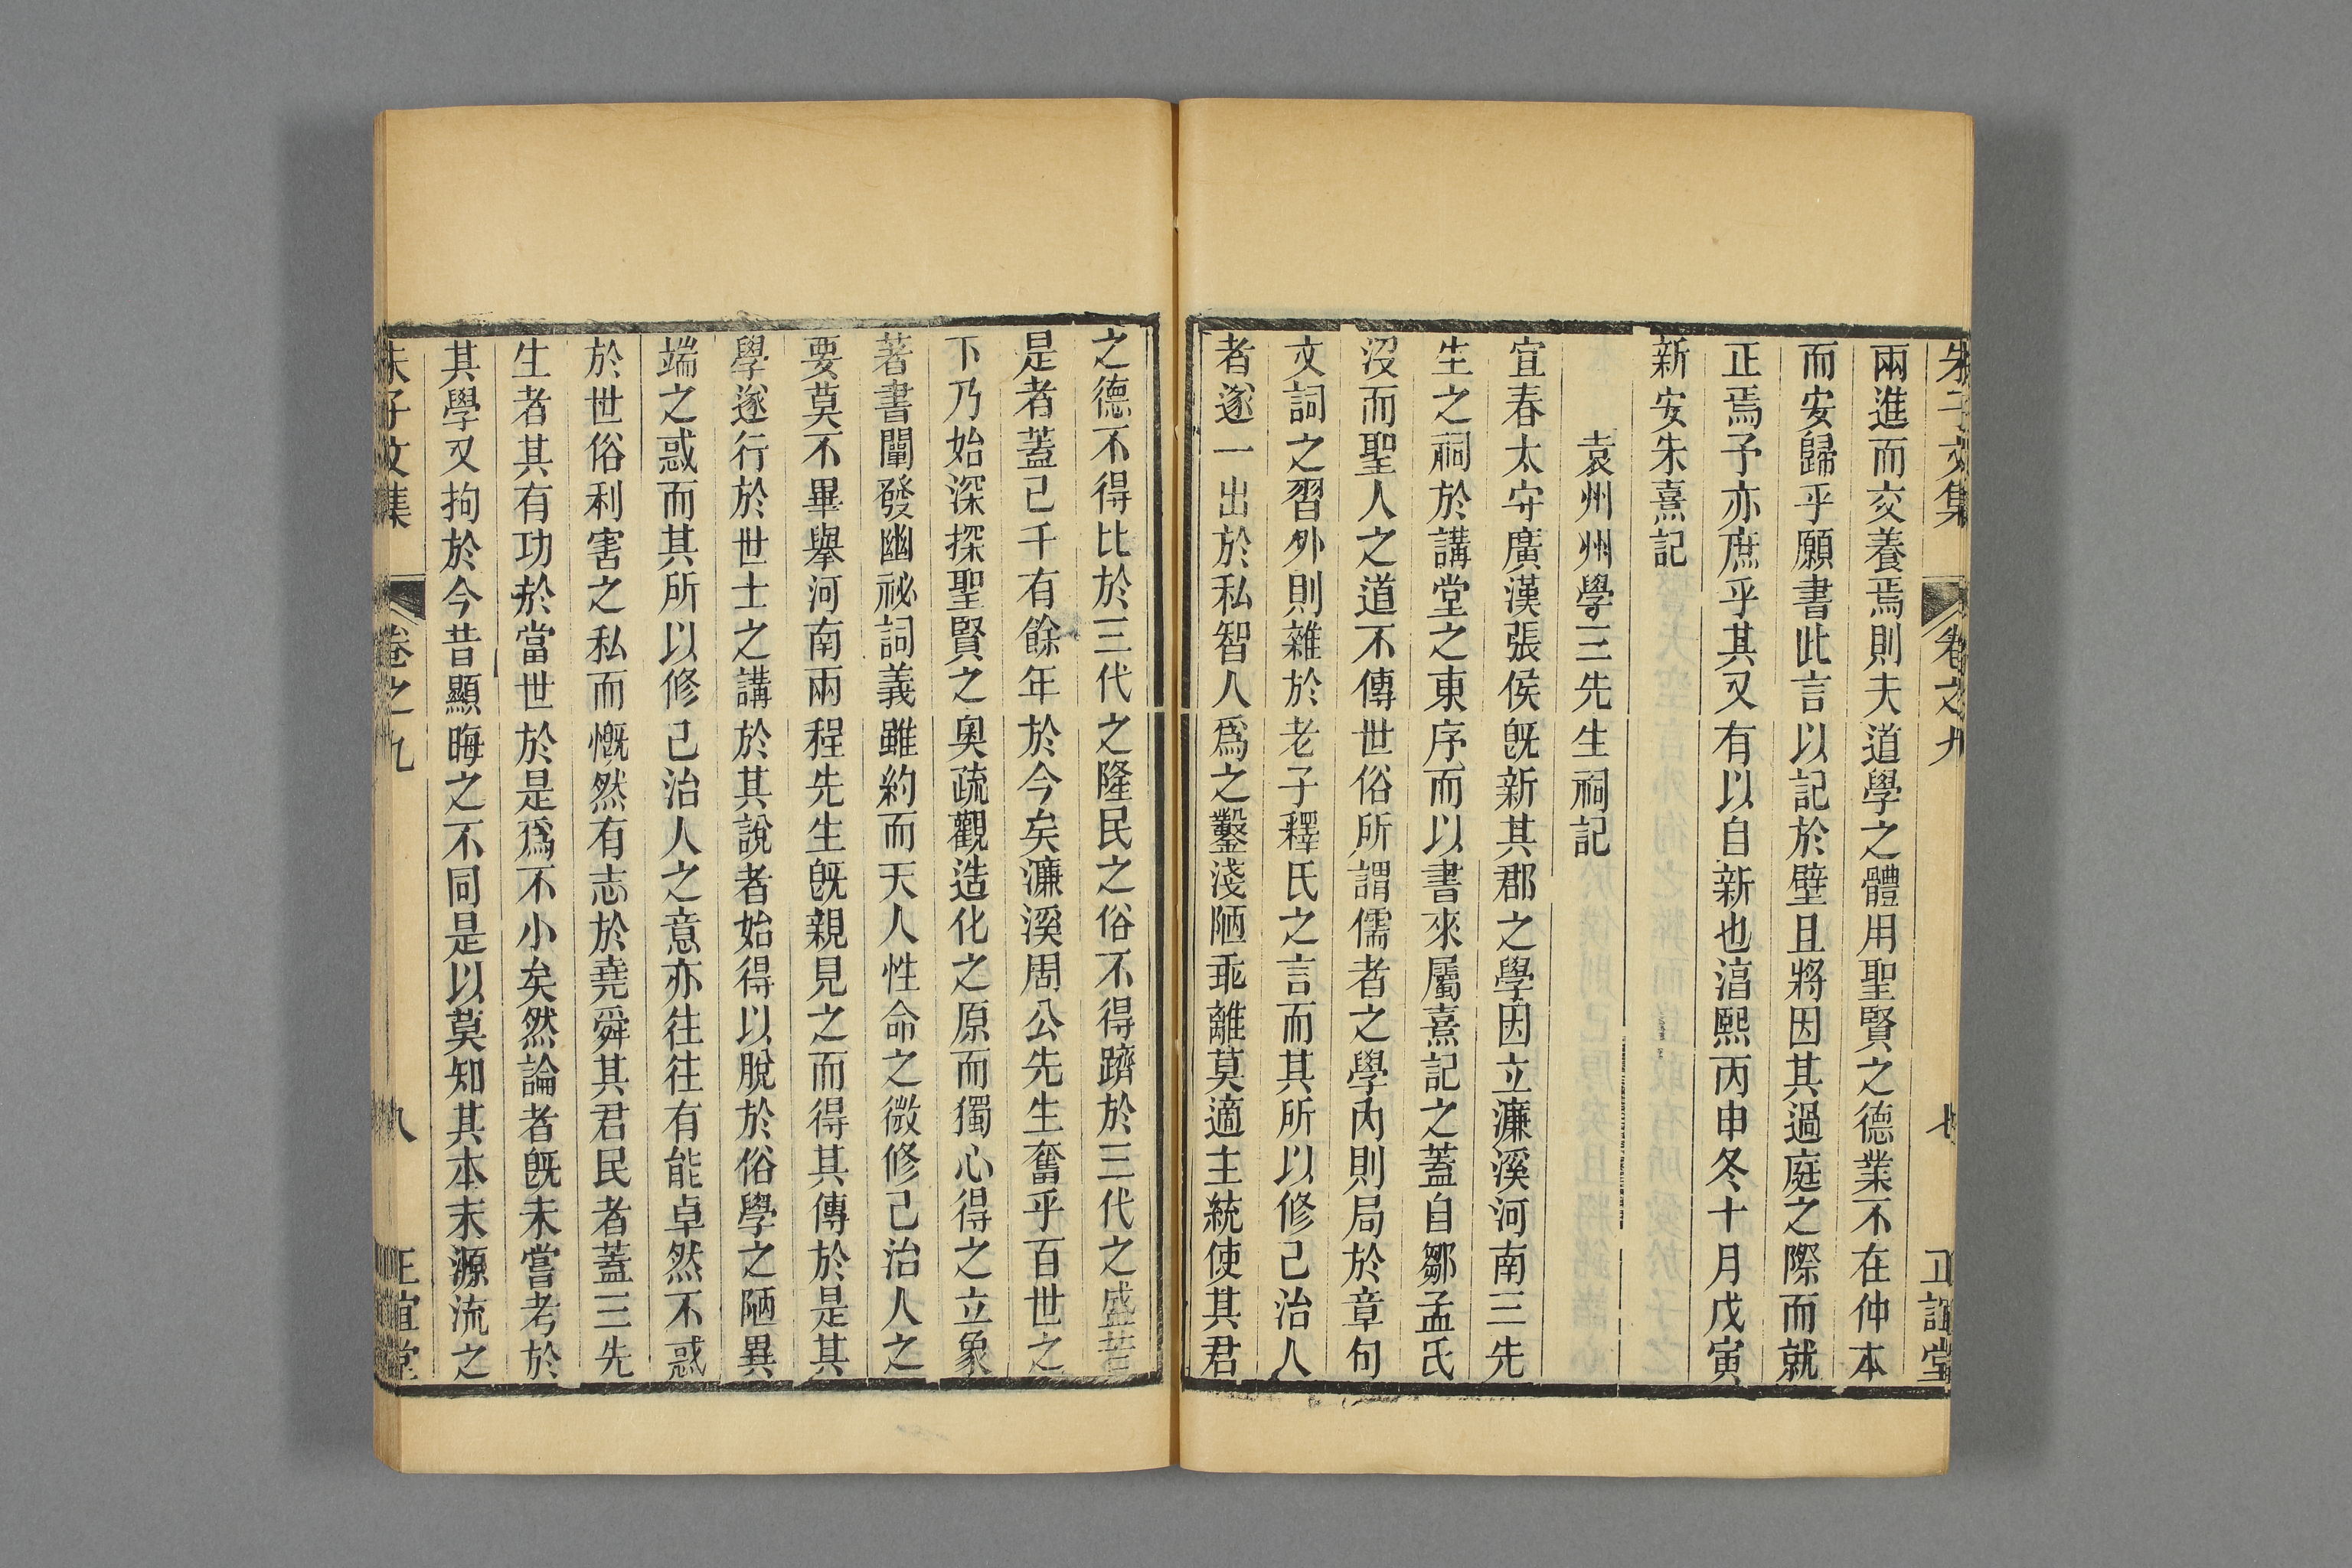 朱子文集 卷之九 七 正誼堂
兩進而交養焉則夫道學之體用聖賢之德業不在仲本
而安歸乎願書此言以記於壁且將因其過庭之際而就
正焉予亦庶乎其又有以自新也淳熙丙申冬十月戊寅
新安朱熹記
袁州州學三先生祠記
宜春太守廣漢張侯旣新其郡之學因立濂溪河南三先
生之祠於講堂之東序而以書來屬熹記之蓋自鄒孟氏
沒而聖人之道不傳世俗所謂儒者之學內則局於章句
文詞之習外則雜於老子釋氏之言而其所以修己治人
者遂一出於私智人爲之鑿淺陋乖離莫適主統使其君
之德不得比於三代之隆民之俗不得躋於三代之盛若
是者蓋已千有餘年於今矣濂溪周公先生奮乎百世之
下乃始深探聖賢之奧疏觀造化之原而獨心得之立象
著書闡發幽祕詞義雖約而天人性命之微修己治人之
要莫不畢舉河南兩程先生旣親見之而得其傳於是其
學遂行於世士之講於其說者始得以脫於俗學之陋異
端之惑而其所以修己治人之意亦往往有能卓然不惑
於世俗利害之私而慨然有志於堯舜其君民者蓋三先
生者其有功於當世於是爲不小矣然論者旣未嘗考於
其學又拘於今昔顯晦之不同是以莫知其本末源流之
朱子文集 卷之九 八 正誼堂